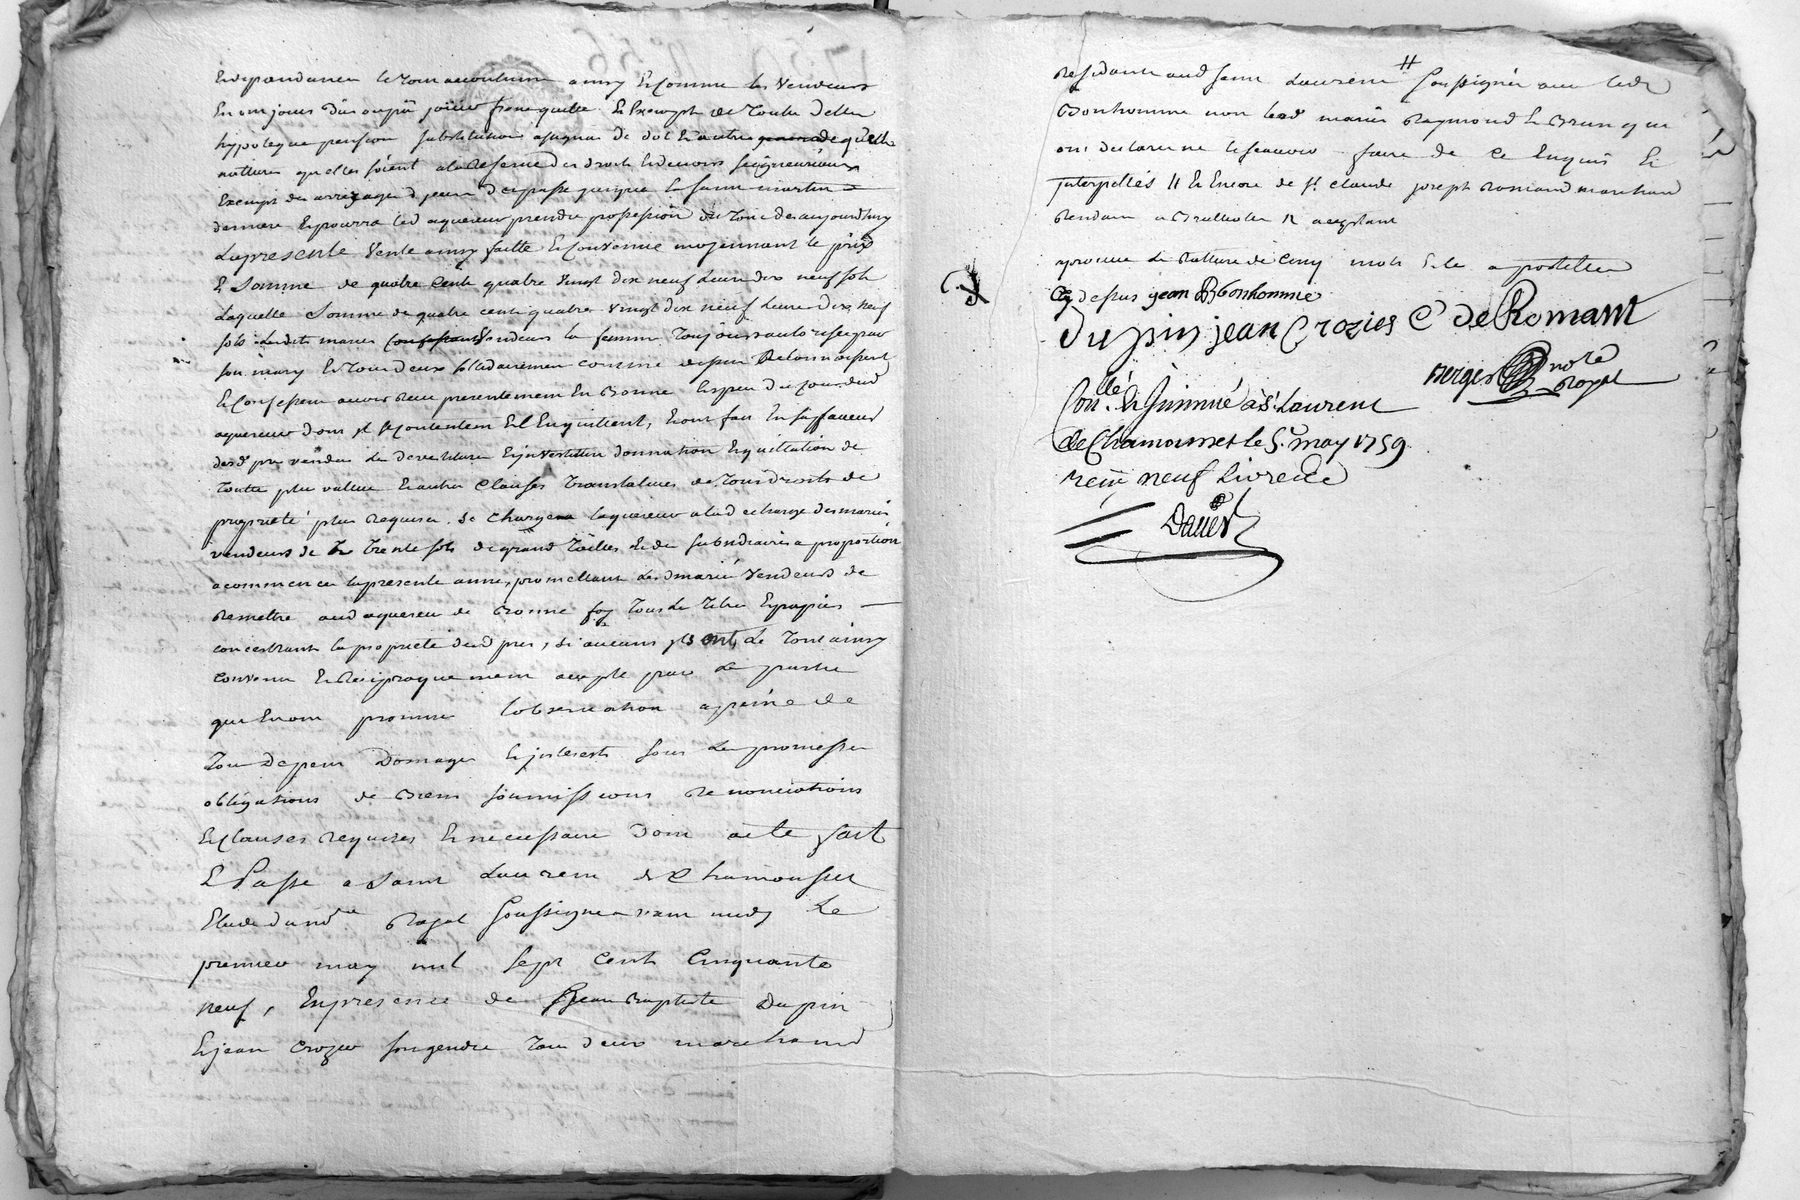 Et dependances le tout accoutumé ainsy Et Comme les Vendeurs
En ont jouis Du ou pû joüir franc quitte Et Exempt de Toutte Dettes
hypoteque pension substitution assignat de dot Et autre de quelle
nature quelles soient a la Reserve des droits Et devoirs seigneuriaux
Exempt des arrérages d'jceux du passé jusque la saint martin
derniere Et pourra led aquereur prendre possession du Tout des aujourdhuy
La presente Vente ainsy faitte Et Convenue moyennant le prix
Et Somme de quatre Cents quatre Vingt dix neuf Livres dix neuf sols
Laquelle Somme de quatre cents quatre Vingt dix neuf Livres dix neuf
sols lesdits mariés Vendeurs la femme Toujours autorisée par
son mary Et Tous deux solidairement comme dessus Reconnoissent
Et Confessent avoir Reçu presentement En Bonnes Especes du Cours dud
aquereur dont jls se contentent Et L'En quittent, Et ont fait En sa faveur
desd prés vendus les devetiture Et jnvestiture donnation Et quittation de
Toutte plus vallue Et autres Clauses Translatives de Tous Droits de
proprieté plus Requises. se Chargera laquereur a la decharge des mariés
vendeurs de Trente sols de grand Tailles Et des subsidiaires a proportion
a commencer la presente année, promettant lesd mariés Vendeurs de
Remettre aud aquereur de Bonne foy Tous les Titres Et papiers
concernants la proprieté desd prés, si aucuns jls ont, Le Tout ainsy
Convenu Et Reciproquement accepté par les parties
qui En ont promis l'observation a peine de
Tous Depens Domages Et jnterests sous les promesses
obligations de Biens soumissions Renonciations
Et Clauses Requises Et necessaires dont acte fait
Et Passé a Saint Laurent de Chamousset
Etude du no.re Royal soussigné avant midy Le
premier may mil sept Cents Cinquante
neuf, En presence de Jean Baptiste Dupin
Et jean Crozier son gendre Tous deux marchand
Residants aud saint Laurent # soussignés avec led
Bonhomme non lesd mariés Raymond Et Brun que
ont declaré ne le sçavoir faire de Ce Enquis Et
jnterpellés # Et Encore de S.r Claude joseph Romand marchand
aprouvé la Rature de Cinq mots Et le apostille
Cy dessus jean Bonhomme
Dupin jean Crozier C de Romant
Berger no.re
Royal
Con.llé Et Jnsinué à S.t Laurent
de Chamousset le 5.e may 1759.
reçu neuf Livres